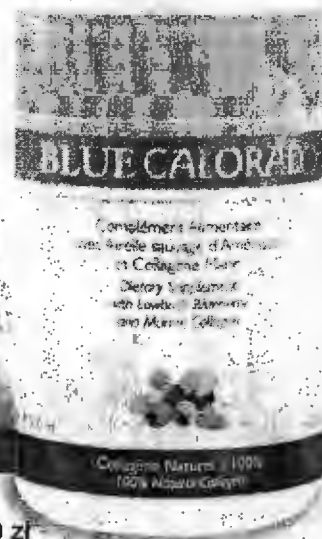 BLUE CALORAD
Complément Alimentaire
avec Airelle sauvage d'
et Collagène Marin
Dietary Supplement
with Lowbush Blueberry
and Marine Collagen
Collagène Naturel 100%
100% Natural Collagen
0 zł